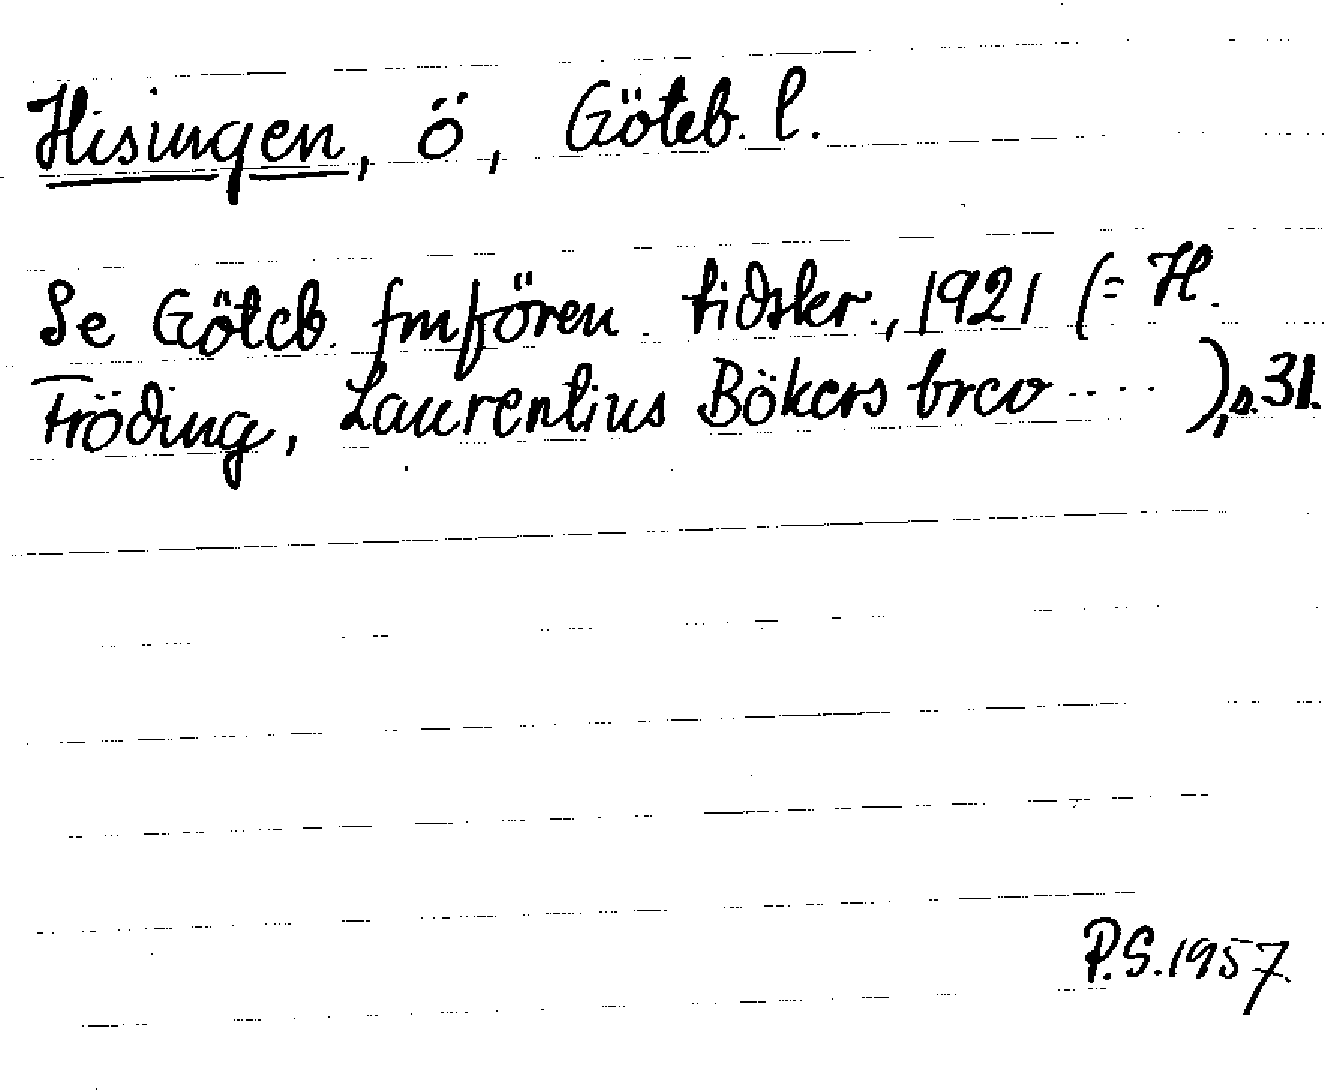 Hisingen, ö, Göteb. l.
Se Göteb. fmfören. tidskr., 1921 (= H.
Fröding, Laurentius Bökers brev .... ), s. 31.
P.S. 1957.